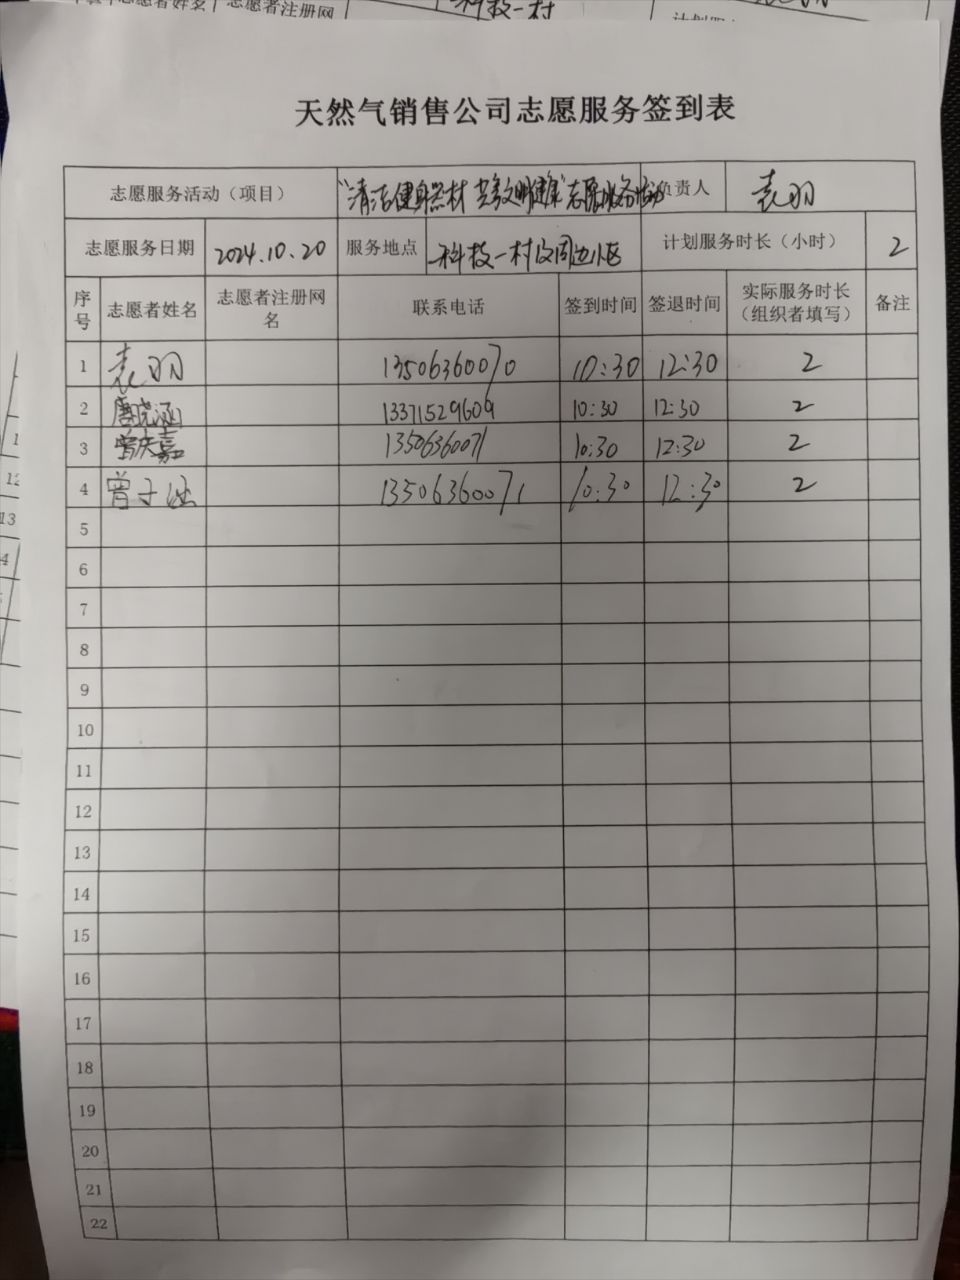 志愿者姓名 志愿者注册网
科技一村
天然气销售公司志愿服务签到表
志愿服务活动（项目） “清洁健身器材 共享文明健康”志愿服务活动 负责人 袁羽
志愿服务日期 2024.10.20 服务地点 科技一村及周边小区 计划服务时长（小时） 2
序号 志愿者姓名 志愿者注册网名 联系电话 签到时间 签退时间 实际服务时长（组织者填写） 备注
1 袁羽 13506360070 10:30 12:30 2
2 唐晓涵 13371529609 10:30 12:30 2
3 曾庆嘉 13506360071 10:30 12:30 2
4 曾子涵 13506360071 10:30 12:30 2
5
6
7
8
9
10
11
12
13
14
15
16
17
18
19
20
21
22